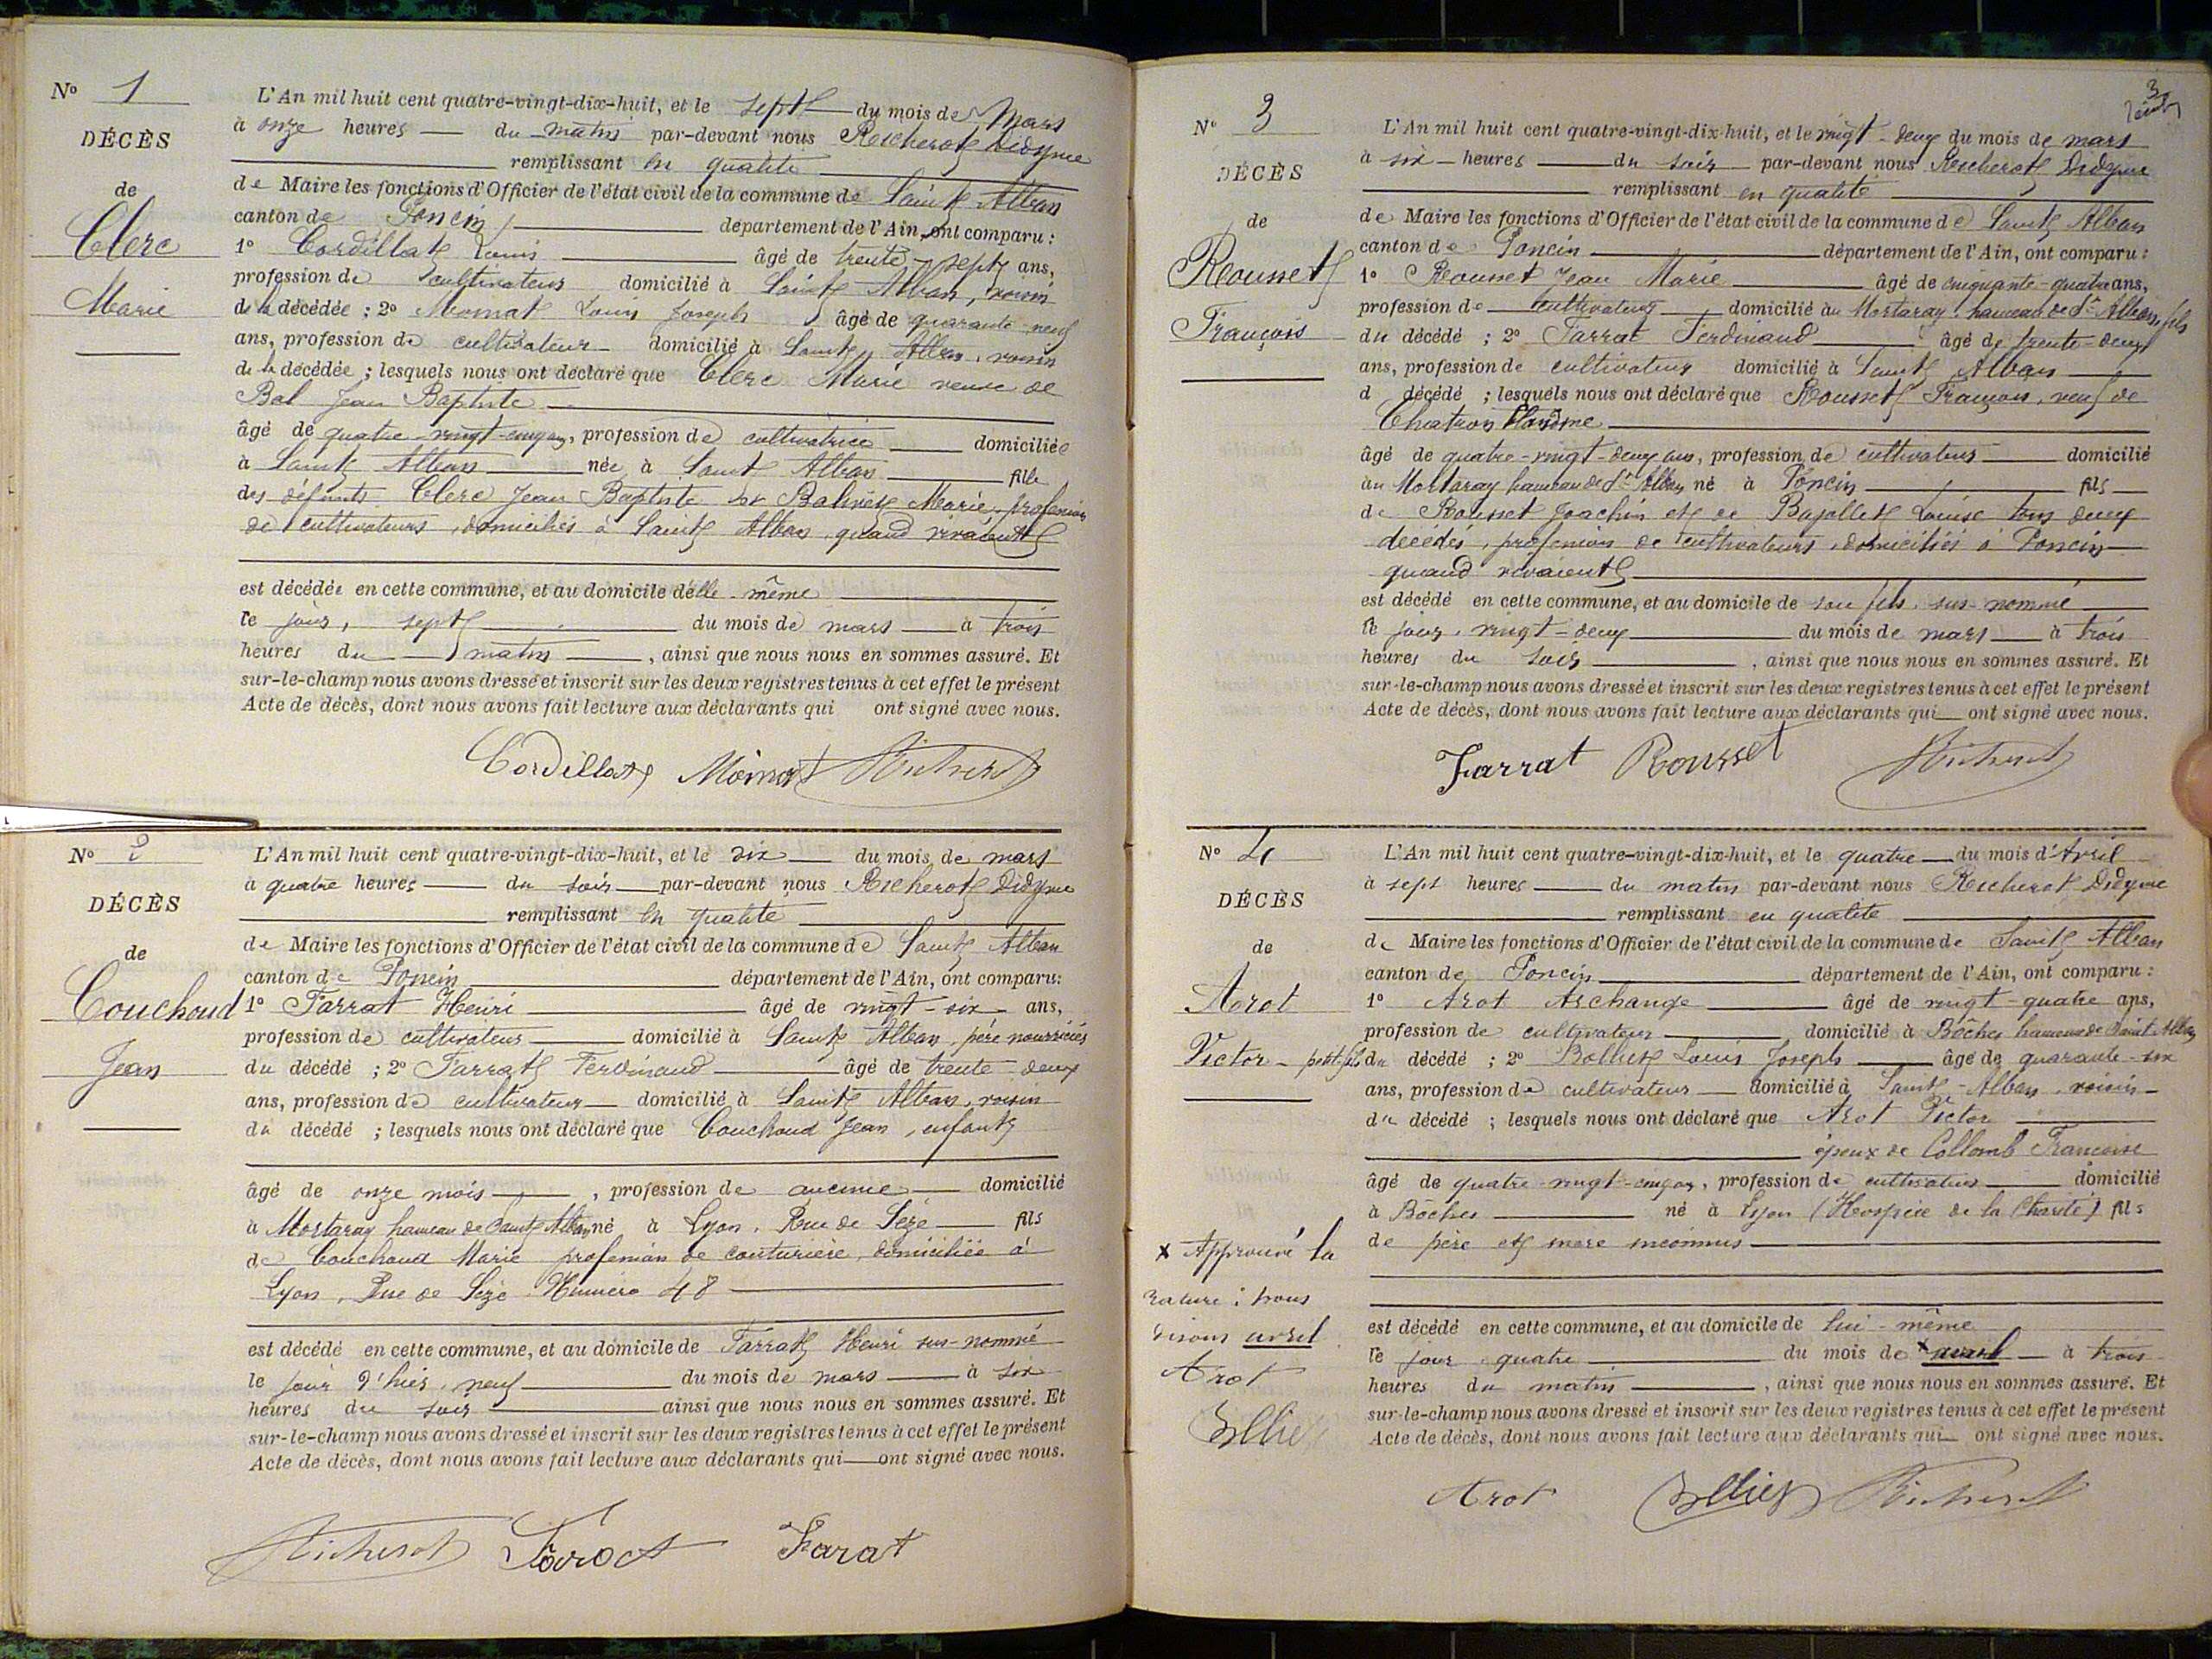 N° 1
DÉCÈS
de
Clerc
Marie
L'An mil huit cent quatre-vingt-dix-huit, et le sept du mois de Mars
à onze heures du matin par-devant nous Richerot Didyme
remplissant en qualité
de Maire les fonctions d'Officier de l'état civil de la commune de Saint Alban
canton de Poncin département de l'Ain, ont comparu :
1° Cordillat Louis âgé de trente-sept ans,
profession de cultivateur domicilié à Saint Alban, voisin
de la décédée ; 2° Mornat Louis Joseph âgé de quarante-neuf
ans, profession de cultivateur domicilié à Saint Alban, voisin
de la décédée ; lesquels nous ont déclaré que Clerc Marie veuve de
Bal Jean Baptiste
âgé de quatre-vingt-cinq ans, profession de cultivatrice domiciliée
à Saint Alban née à Saint Alban fille
des défunts Clerc Jean Baptiste et Marie, profession
de cultivateurs, domiciliés à Saint Alban quand vivaient
est décédée en cette commune, et au domicile d'elle-même
le jour, sept du mois de mars à trois
heures du matin, ainsi que nous nous en sommes assuré. Et
sur-le-champ nous avons dressé et inscrit sur les deux registres tenus à cet effet le présent
Acte de décès, dont nous avons fait lecture aux déclarants qui ont signé avec nous.
Cordillat Mornat Richerot
N° 2
DÉCÈS
de
Couchoud
Jean
L'An mil huit cent quatre-vingt-dix-huit, et le dix du mois de mars
à quatre heures du soir par-devant nous Richerot Didyme
remplissant en qualité
de Maire les fonctions d'Officier de l'état civil de la commune de Saint Alban
canton de Poncin département de l'Ain, ont comparu :
1° Farrat Henri âgé de vingt-six ans,
profession de cultivateur domicilié à Saint Alban, père nourricier
du décédé ; 2° Farrat Ferdinand âgé de trente-deux
ans, profession de cultivateur domicilié à Saint Alban, voisin
du décédé ; lesquels nous ont déclaré que Couchoud Jean, enfant
âgé de onze mois, profession de aucune domicilié
à Mortaray hameau de Saint Alban, né à Lyon, Rue de Sèze fils
de Couchoud Marie profession de couturière, domiciliée à
Lyon, Rue de Sèze Numéro 48
est décédé en cette commune, et au domicile de Farrat Henri sus-nommé
le jour d'hier, neuf du mois de mars à six
heures du soir ainsi que nous nous en sommes assuré. Et
sur-le-champ nous avons dressé et inscrit sur les deux registres tenus à cet effet le présent
Acte de décès, dont nous avons fait lecture aux déclarants qui ont signé avec nous.
Richerot Farat
3
N° 3
DÉCÈS
de
Rousset
François
L'An mil huit cent quatre-vingt-dix-huit, et le vingt-deux du mois de mars
à six heures du soir par-devant nous Richerot Didyme
remplissant en qualité
de Maire les fonctions d'Officier de l'état civil de la commune de Saint Alban
canton de Poncin département de l'Ain, ont comparu :
1° Rousset Jean Marie âgé de cinquante-quatre ans,
profession de cultivateur domicilié au Mortaray, hameau de St Alban, fils
du décédé ; 2° Farrat Ferdinand âgé de trente-deux
ans, profession de cultivateur domicilié à Saint Alban
d décédé ; lesquels nous ont déclaré que Rousset François, veuf de
Chatron
âgé de quatre-vingt-deux ans, profession de cultivateur domicilié
au Mortaray hameau de St Alban né à Poncin fils
de Rousset Joachin et de Bajollet Louise tous deux
décédés, profession de cultivateurs, domiciliés à Poncin
quand vivaient
est décédé en cette commune, et au domicile de son fils sus-nommé
le jour, vingt-deux du mois de mars à trois
heures du soir, ainsi que nous nous en sommes assuré. Et
sur-le-champ nous avons dressé et inscrit sur les deux registres tenus à cet effet le présent
Acte de décès, dont nous avons fait lecture aux déclarants qui ont signé avec nous.
Farrat Rousset Richerot
N° 4
DÉCÈS
de
Arot
Victor
L'An mil huit cent quatre-vingt-dix-huit, et le quatre du mois d'Avril
à sept heures du matin par-devant nous Richerot Didyme
remplissant en qualité
de Maire les fonctions d'Officier de l'état civil de la commune de Saint Alban
canton de Poncin département de l'Ain, ont comparu :
1° Arot Archange âgé de vingt-quatre ans,
profession de cultivateur domicilié à Bôches hameau de Saint Alban
petit-fils du décédé ; 2° Bolliet Louis Joseph âgé de quarante-six
ans, profession de cultivateur domicilié à Saint-Alban, voisin
du décédé ; lesquels nous ont déclaré que Arot Victor
époux de Collomb Françoise
âgé de quatre-vingt-cinq ans, profession de cultivateur domicilié
à Bôches né à Lyon (Hospice de la Charité) fils
de père et mère inconnus
est décédé en cette commune, et au domicile de lui-même
le jour quatre du mois de x avril à trois
heures du matin, ainsi que nous nous en sommes assuré. Et
sur-le-champ nous avons dressé et inscrit sur les deux registres tenus à cet effet le présent
Acte de décès, dont nous avons fait lecture aux déclarants qui ont signé avec nous.
x Approuvé la
rature : nous
disons avril
Arot
Bolliet
Arot Bolliet Richerot